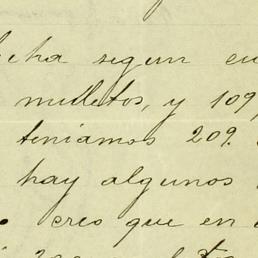 segun
mulletos, y 109
teniamos 209.
hay algunos
creo que en